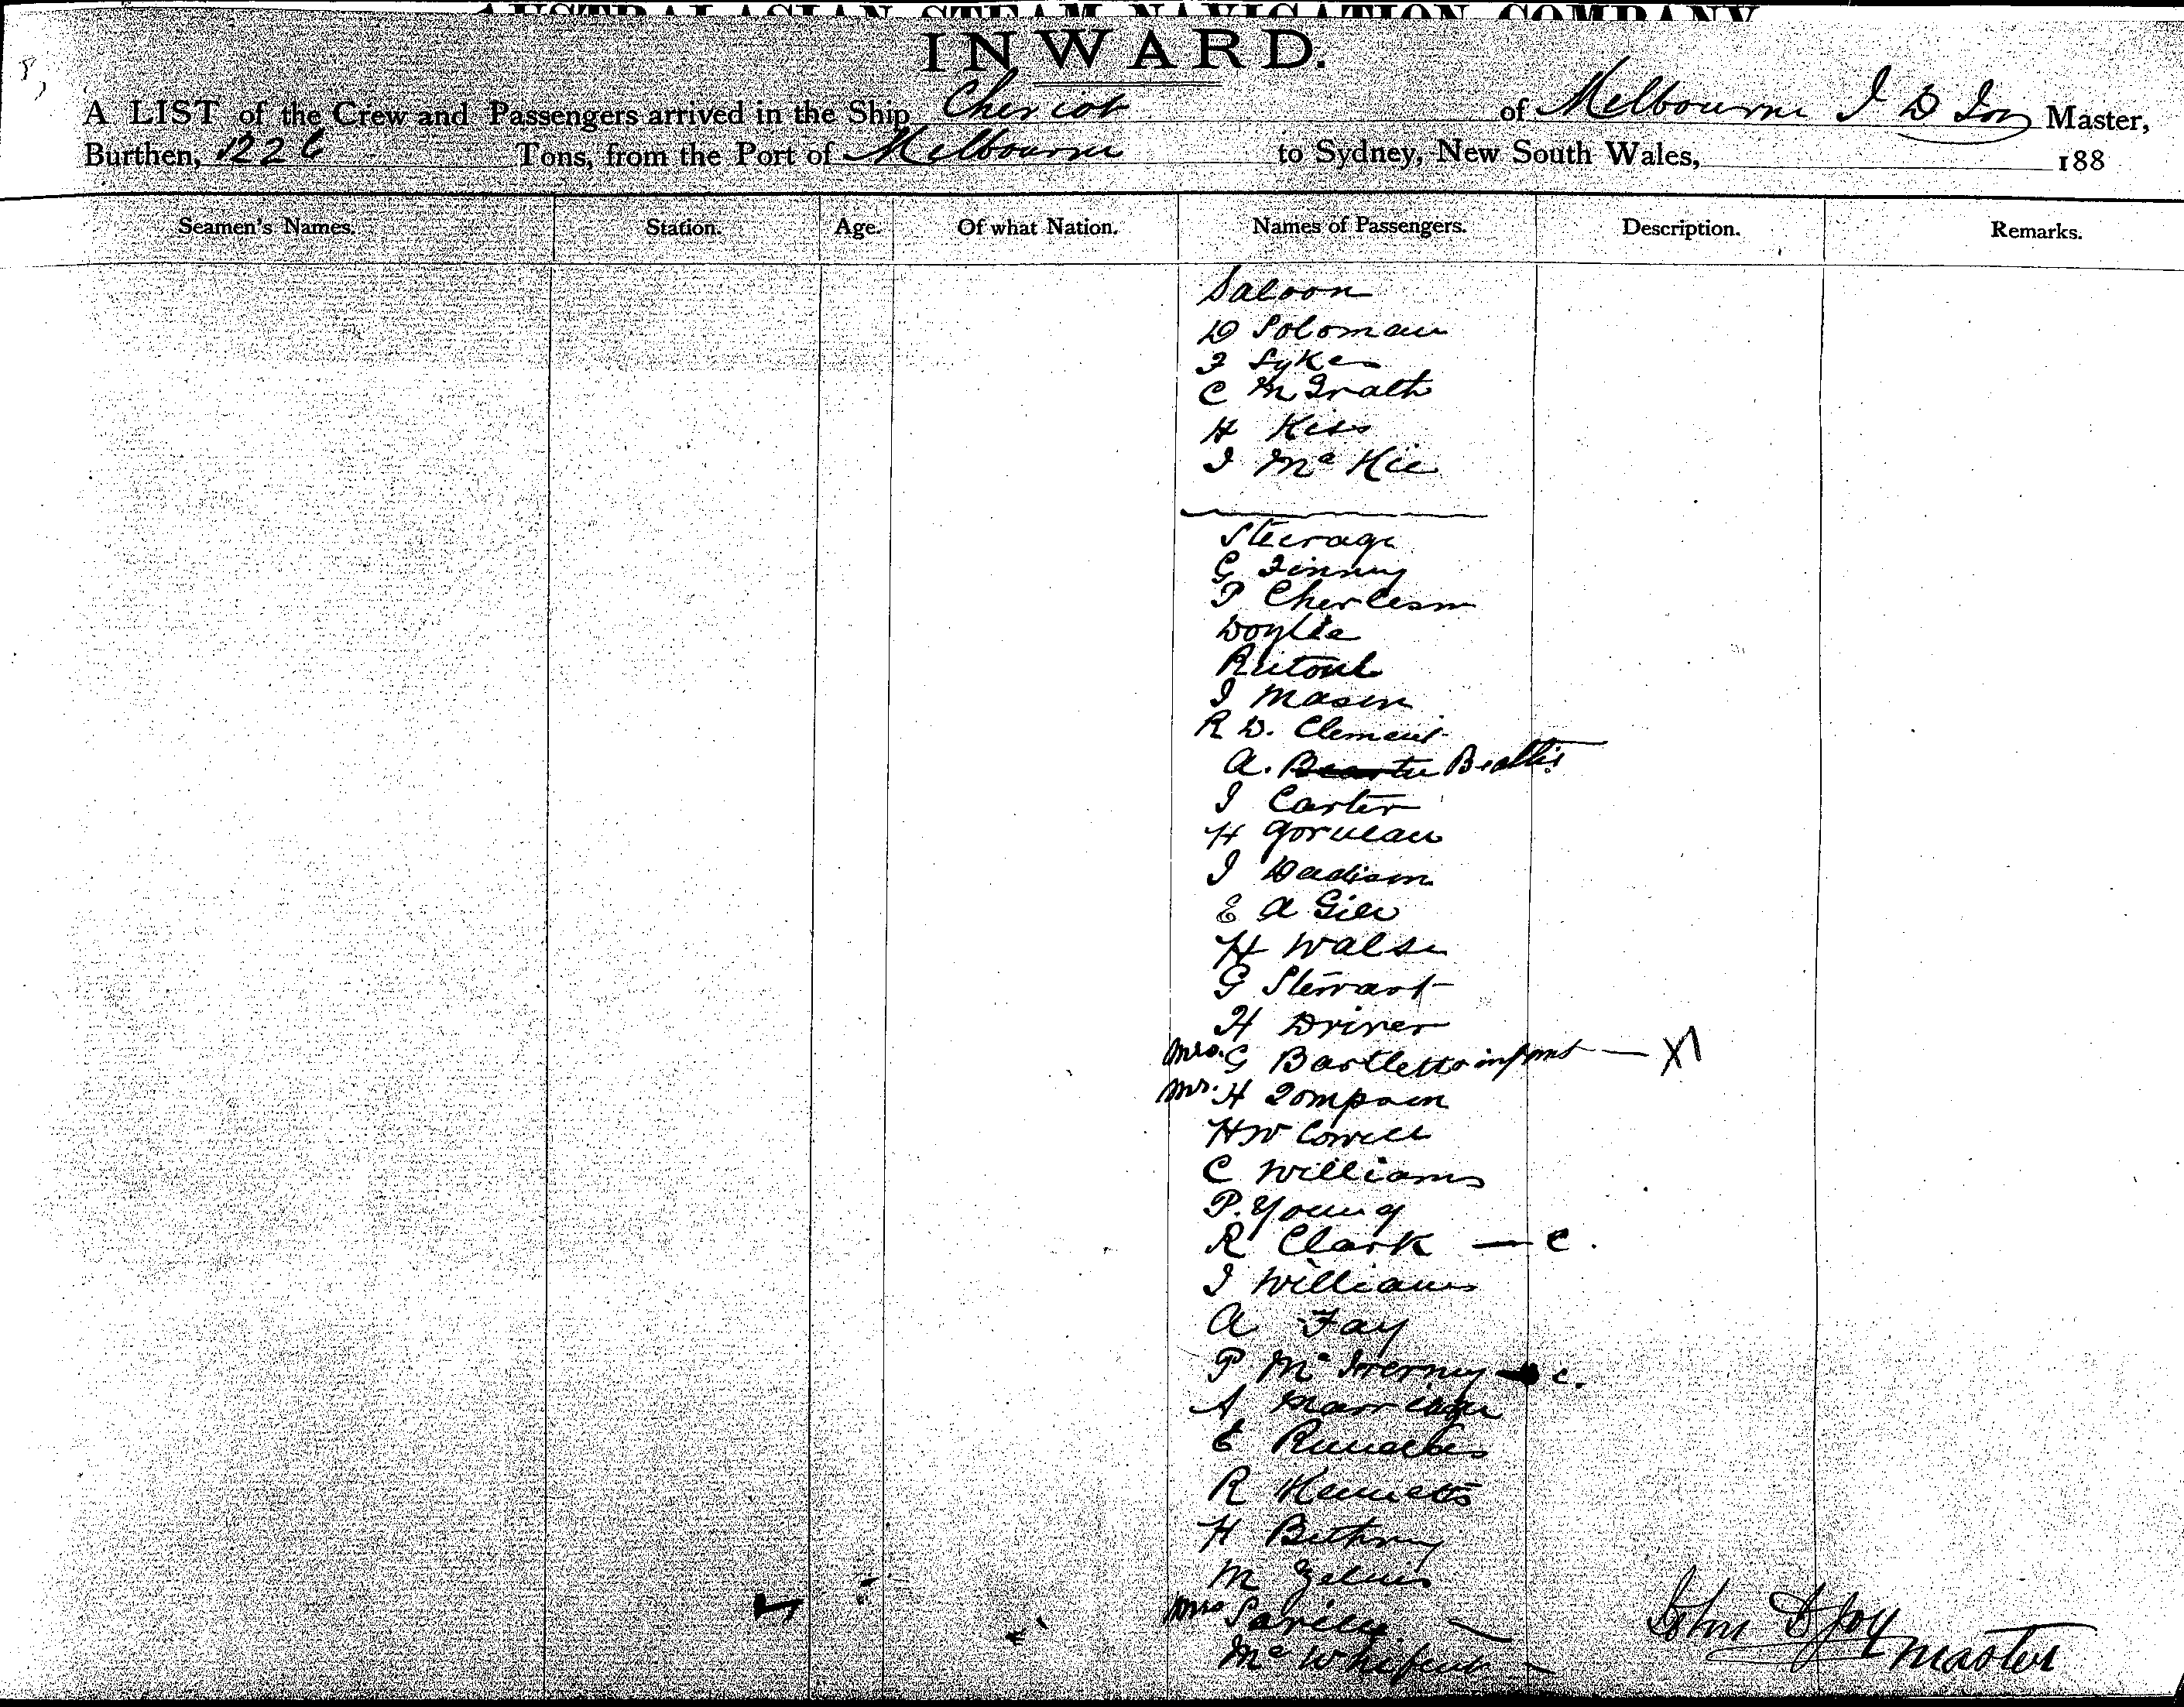 AUSTRALASIAN STEAM NAVIGATION COMPANY
INWARD.
A LIST of the Crew and Passengers arrived in the Ship Cheviot of Melbourne J D Joy Master,
Burthen, 1226 Tons, from the Port of Melbourne to Sydney, New South Wales, 188
Seamen's Names. Station. Age. Of what Nation. Names of Passengers. Description. Remarks.
Saloon
D Soloman
F Sykes
C McGrath
H Kiss
J Mc Kie
Steerage
G Finney
P Charleson
Doylie
Rutoul
J Mason
R D. Clement
A. Beattie
J Carter
H Gorman
J Dadison
E A Giles
H Walsh
G Stewart
H Driver
Mrs. G Bartlett & infant — X1
Mr. H Tompson
H W Cowell
C Williams
P. Young
R Clark — C.
J Williams
A Fay
P Mc Inerney — C.
A
E
R Hennetts
H
M
Mrs Saville —
Mc —
John D Joy
Master